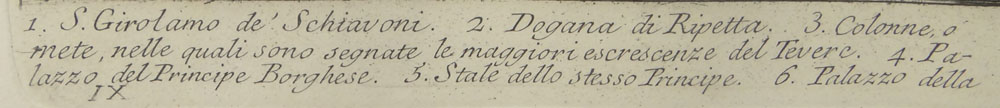 1. S. Girolamo de' Schiavoni. 2. Dogana di Ripetta. 3. Colonne, o
mete, nelle quali sono segnate le maggiori escrescenze del Tevere. 4. Pa-
lazzo del Principe Borghese. 5. Stale dello stesso Principe. 6. Palazzo della
IX